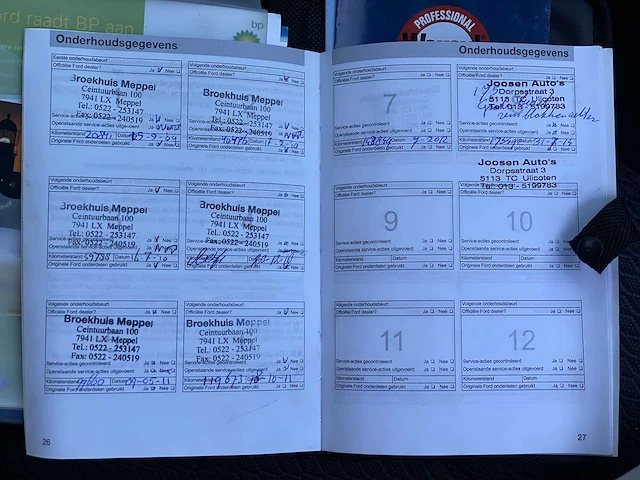 ord raadt BP aan
bp
PROFESSIONAL
Onderhoudsgegevens
Eerste onderhoudsbeurt
Officiële Ford dealer? Ja Nee
Broekhuis Meppel
Ceintuurbaan 100
7941 LX Meppel
Tel.: 0522 - 253147
Fax: 0522 - 240519
Service-acties gecontroleerd Ja Nee
Openstaande service-acties uitgevoerd Ja
Kilometerstand Datum
Originele Ford onderdelen gebruikt Ja Nee
Volgende onderhoudsbeurt
Officiële Ford dealer? Ja Nee
Broekhuis Meppel
Ceintuurbaan 100
7941 LX Meppel
Tel.: 0522 - 253147
Fax: 0522 - 240519
Openstaande service-acties uitgevoerd Ja
Kilometerstand
Originele Ford onderdelen gebruikt Ja Nee
Volgende onderhoudsbeurt
Officiële Ford dealer? Ja Nee
Broekhuis Meppel
Ceintuurbaan 100
7941 LX Meppel
Tel.: 0522 - 253147
Fax: 0522 - 240519
Openstaande service-acties uitgevoerd Ja
Kilometerstand 55788 Datum 6-7-10
Originele Ford onderdelen gebruikt Ja Nee
Volgende onderhoudsbeurt
Officiële Ford dealer? Ja Nee
Broekhuis Meppel
Ceintuurbaan 100
7941 LX Meppel
Tel.: 0522 - 253147
Fax: 0522 - 240519
Openstaande service-acties uitgevoerd Ja
Originele Ford onderdelen gebruikt Ja Nee
Volgende onderhoudsbeurt
Officiële Ford dealer? Ja Nee
Broekhuis Meppel
Ceintuurbaan 100
7941 LX Meppel
Tel.: 0522 - 253147
Fax: 0522 - 240519
Service-acties gecontroleerd Ja Nee
Openstaande service-acties uitgevoerd Ja
Kilometerstand Datum 09-05-11
Originele Ford onderdelen gebruikt Ja Nee
Volgende onderhoudsbeurt
Officiële Ford dealer? Ja Nee
Broekhuis Meppel
Ceintuurbaan 100
7941 LX Meppel
Tel.: 0522 - 253147
Fax: 0522 - 240519
Service-acties gecontroleerd Ja Nee
Openstaande service-acties uitgevoerd Ja Nee
119673 10-11
Originele Ford onderdelen gebruikt Ja Nee
26
Onderhoudsgegevens
Volgende onderhoudsbeurt
Officiële Ford dealer? Ja Nee
7
Service-acties gecontroleerd Ja Nee
Openstaande service-acties uitgevoerd Ja Nee
Kilometerstand Datum 2012
Originele Ford onderdelen gebruikt Ja Nee
Volgende onderhoudsbeurt
Joosen Auto's
Dorpsstraat 3
5113 TC Ulicoten
Tel: 013 - 5199783
Service-acties gecontroleerd Ja Nee
Openstaande service-acties uitgevoerd Ja Nee
Kilometerstand Datum
Originele Ford onderdelen gebruikt Ja Nee
Volgende onderhoudsbeurt
Officiële Ford dealer? Ja Nee
9
Service-acties gecontroleerd Ja Nee
Openstaande service-acties uitgevoerd Ja Nee
Kilometerstand Datum
Originele Ford onderdelen gebruikt Ja Nee
Joosen Auto's
Dorpsstraat 3
5113 TC Ulicoten
Tel: 013 - 5199783
10
Service-acties gecontroleerd Ja
Openstaande service-acties uitgevoerd Ja
Kilometerstand Datum
Originele Ford onderdelen gebruikt Ja Nee
Volgende onderhoudsbeurt
Officiële Ford dealer? Ja Nee
11
Service-acties gecontroleerd Ja Nee
Openstaande service-acties uitgevoerd Ja Nee
Kilometerstand Datum
Originele Ford onderdelen gebruikt Ja Nee
Volgende onderhoudsbeurt
Officiële Ford dealer? Ja Nee
12
Service-acties gecontroleerd Ja Nee
Openstaande service-acties uitgevoerd Ja Nee
Kilometerstand Datum
Originele Ford onderdelen gebruikt Ja Nee
27